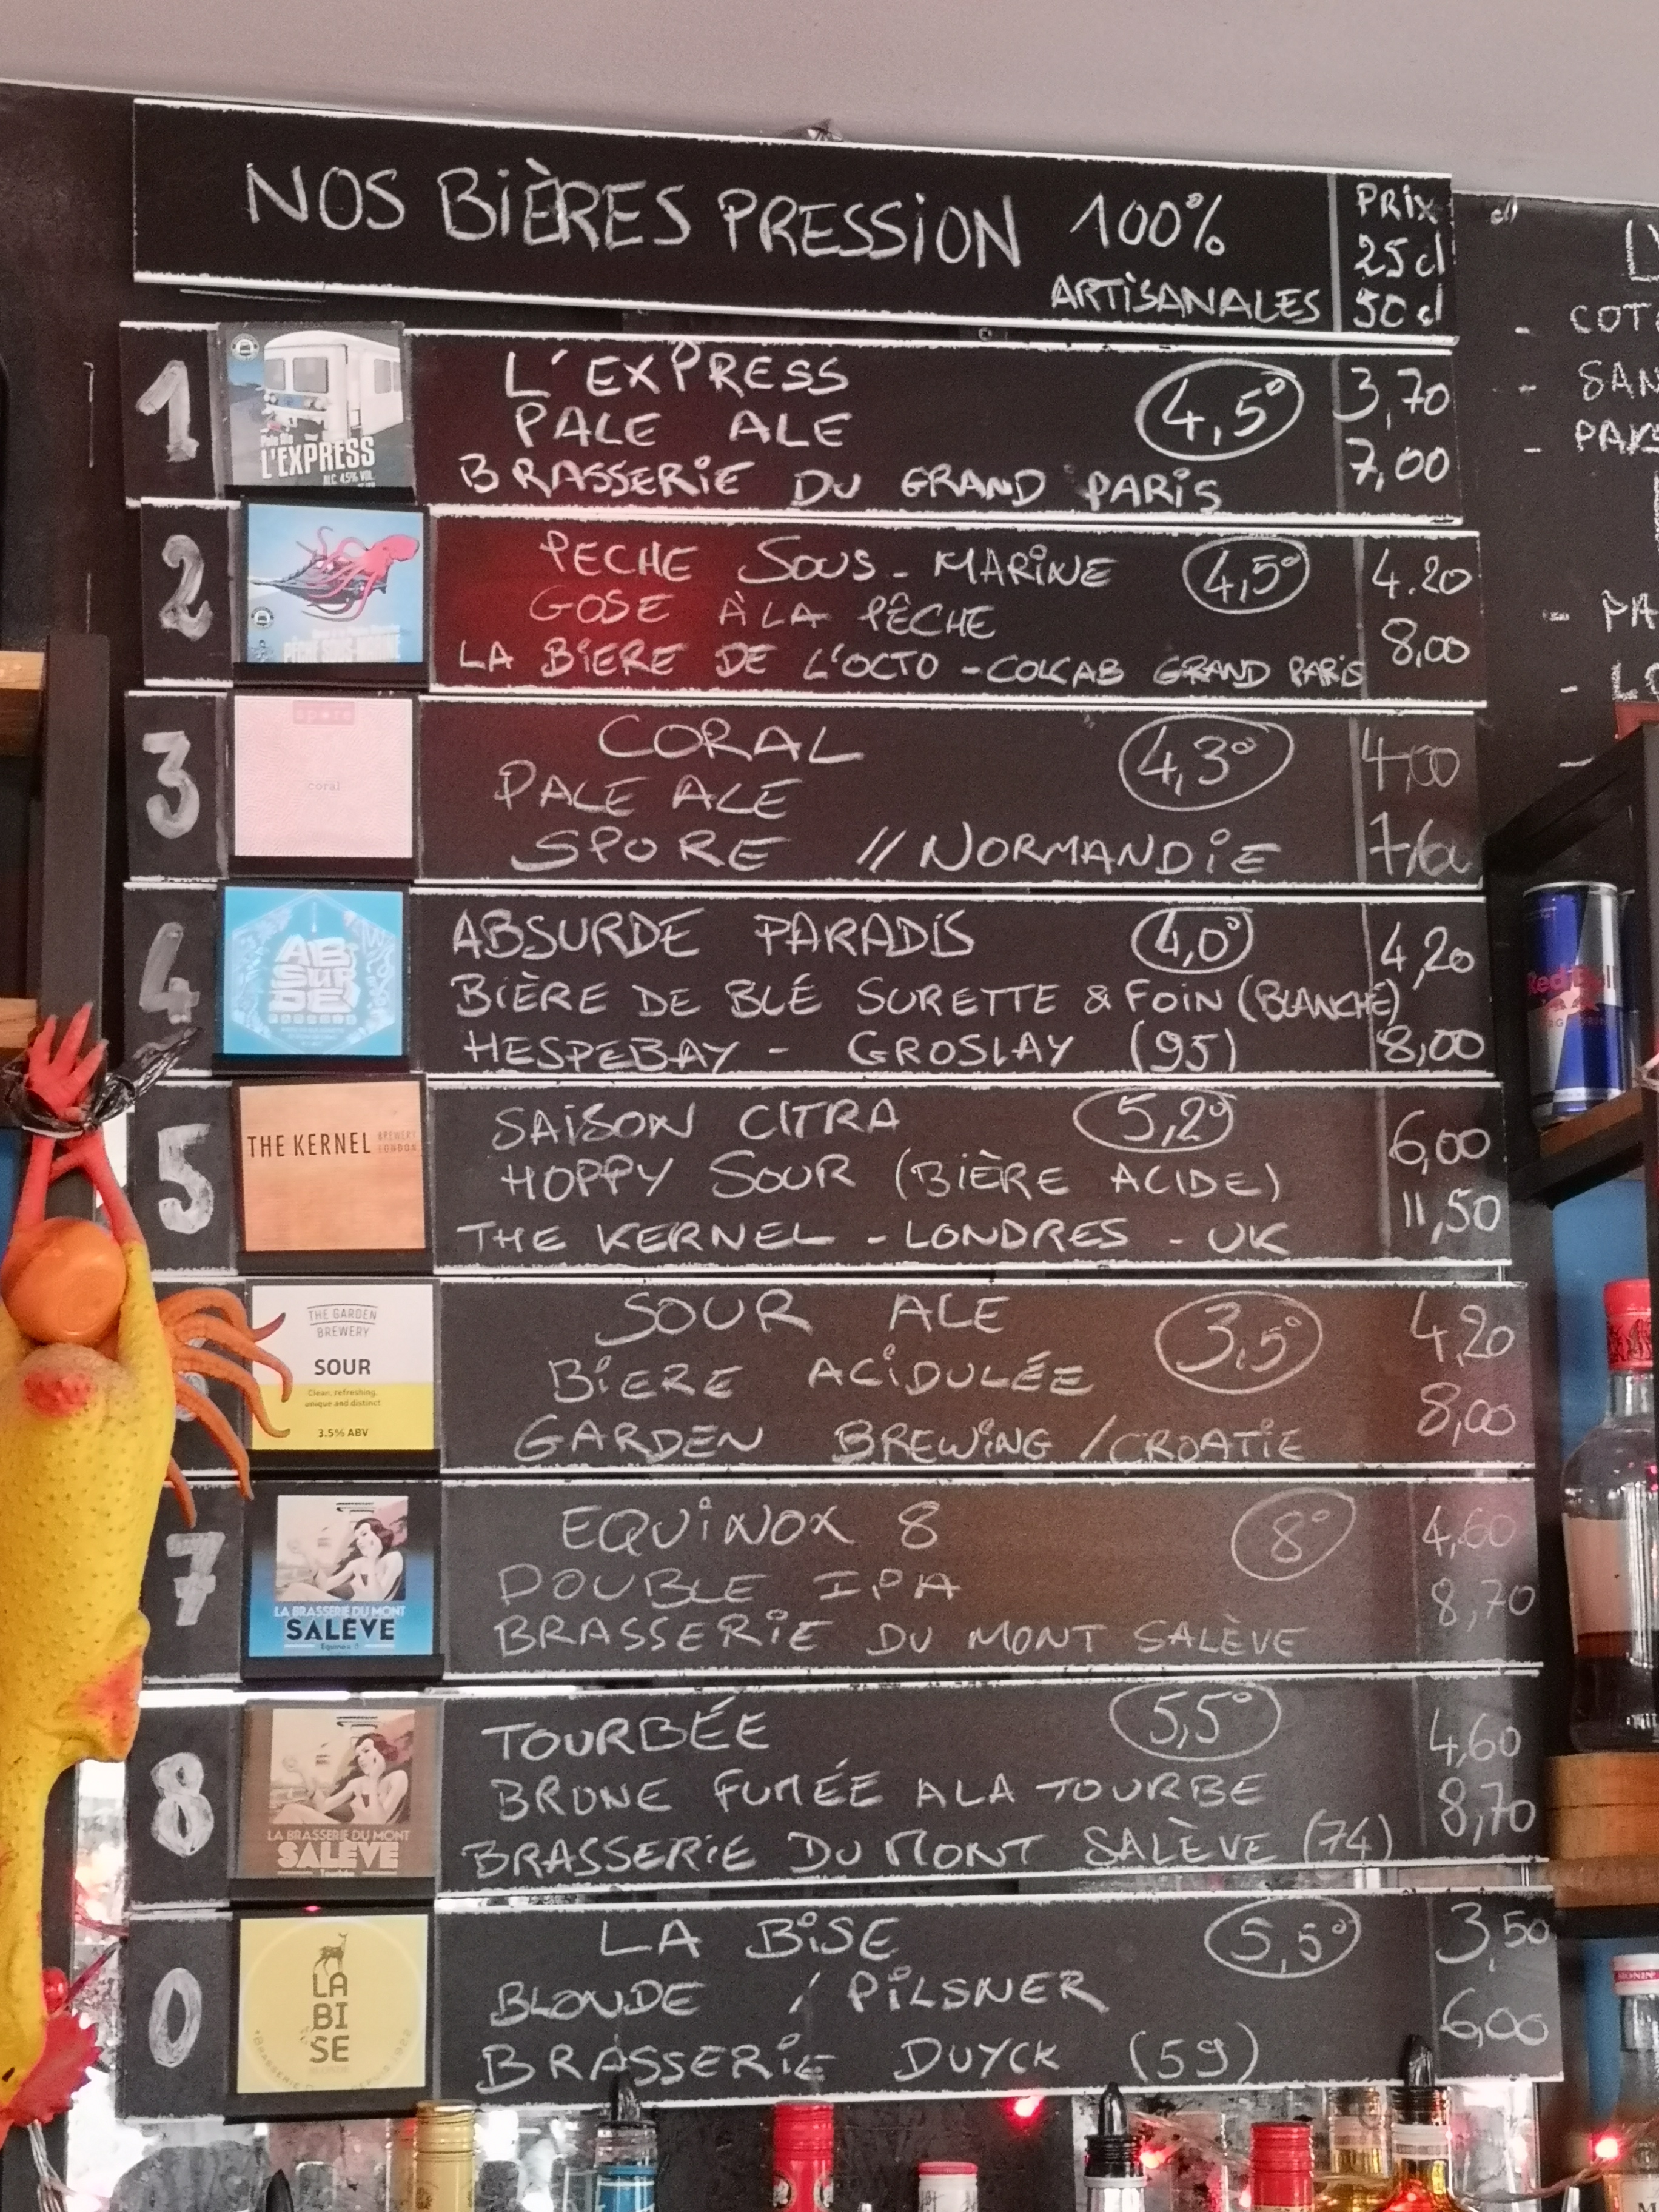 NOS BIÈRES PRESSION 100%
ARTISANALES
PRIX
25 cl
50 cl
1
Pale Ale
L'EXPRESS
ALC 4.5% VOL.
L'EXPRESS
PALE ALE
BRASSERIE DU GRAND PARIS
4,5°
3,70
7,00
2
PÊCHE SOUS-MARINE
PECHE SOUS-MARINE
GOSE À LA PÊCHE
LA BIERE DE L'OCTO - COLLAB GRAND PARIS
4,5°
4.20
8,00
3
spore
coral
CORAL
PALE ALE
SPORE // NORMANDIE
4,3°
4,00
7,60
4
AB
SUR
DE
ABSURDE PARADIS
BIÈRE DE BLÉ SURETTE & FOIN (BLANCHE)
HESPEBAY - GROSLAY (95)
4,0°
4,20
8,00
5
THE KERNEL BREWERY
LONDON
SAISON CITRA
HOPPY SOUR (BIÈRE ACIDE)
THE KERNEL - LONDRES - UK
5,2°
6,00
11,50
THE GARDEN
BREWERY
SOUR
Clean, refreshing,
unique and distinct
3.5% ABV
SOUR ALE
BIERE ACIDULÉE
GARDEN BREWING / CROATIE
3.5°
4,20
8,00
7
LA BRASSERIE DU MONT
SALÈVE
EQUINOX 8
DOUBLE IPA
BRASSERIE DU MONT SALÈVE
8°
4,60
8,70
8
LA BRASSERIE DU MONT
SALÈVE
Tourbée
TOURBÉE
BRUNE FUMÉE A LA TOURBE
BRASSERIE DU MONT SALÈVE (74)
5,5°
4,60
8,70
0
LA
BI
SE
LA BISE
BLONDE / PILSNER
BRASSERIE DUYCK (59)
5,5°
3,50
6,00
- COT
- SAN
- PAYS
- PA
- LO
Red Bull
MONIN